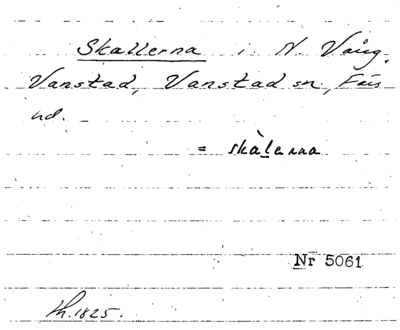 Skallerna i N Vång,
Vanstad, Vanstad sn, Färs
hd.
= skàlerna
Nr 5061
Lh. 1825.